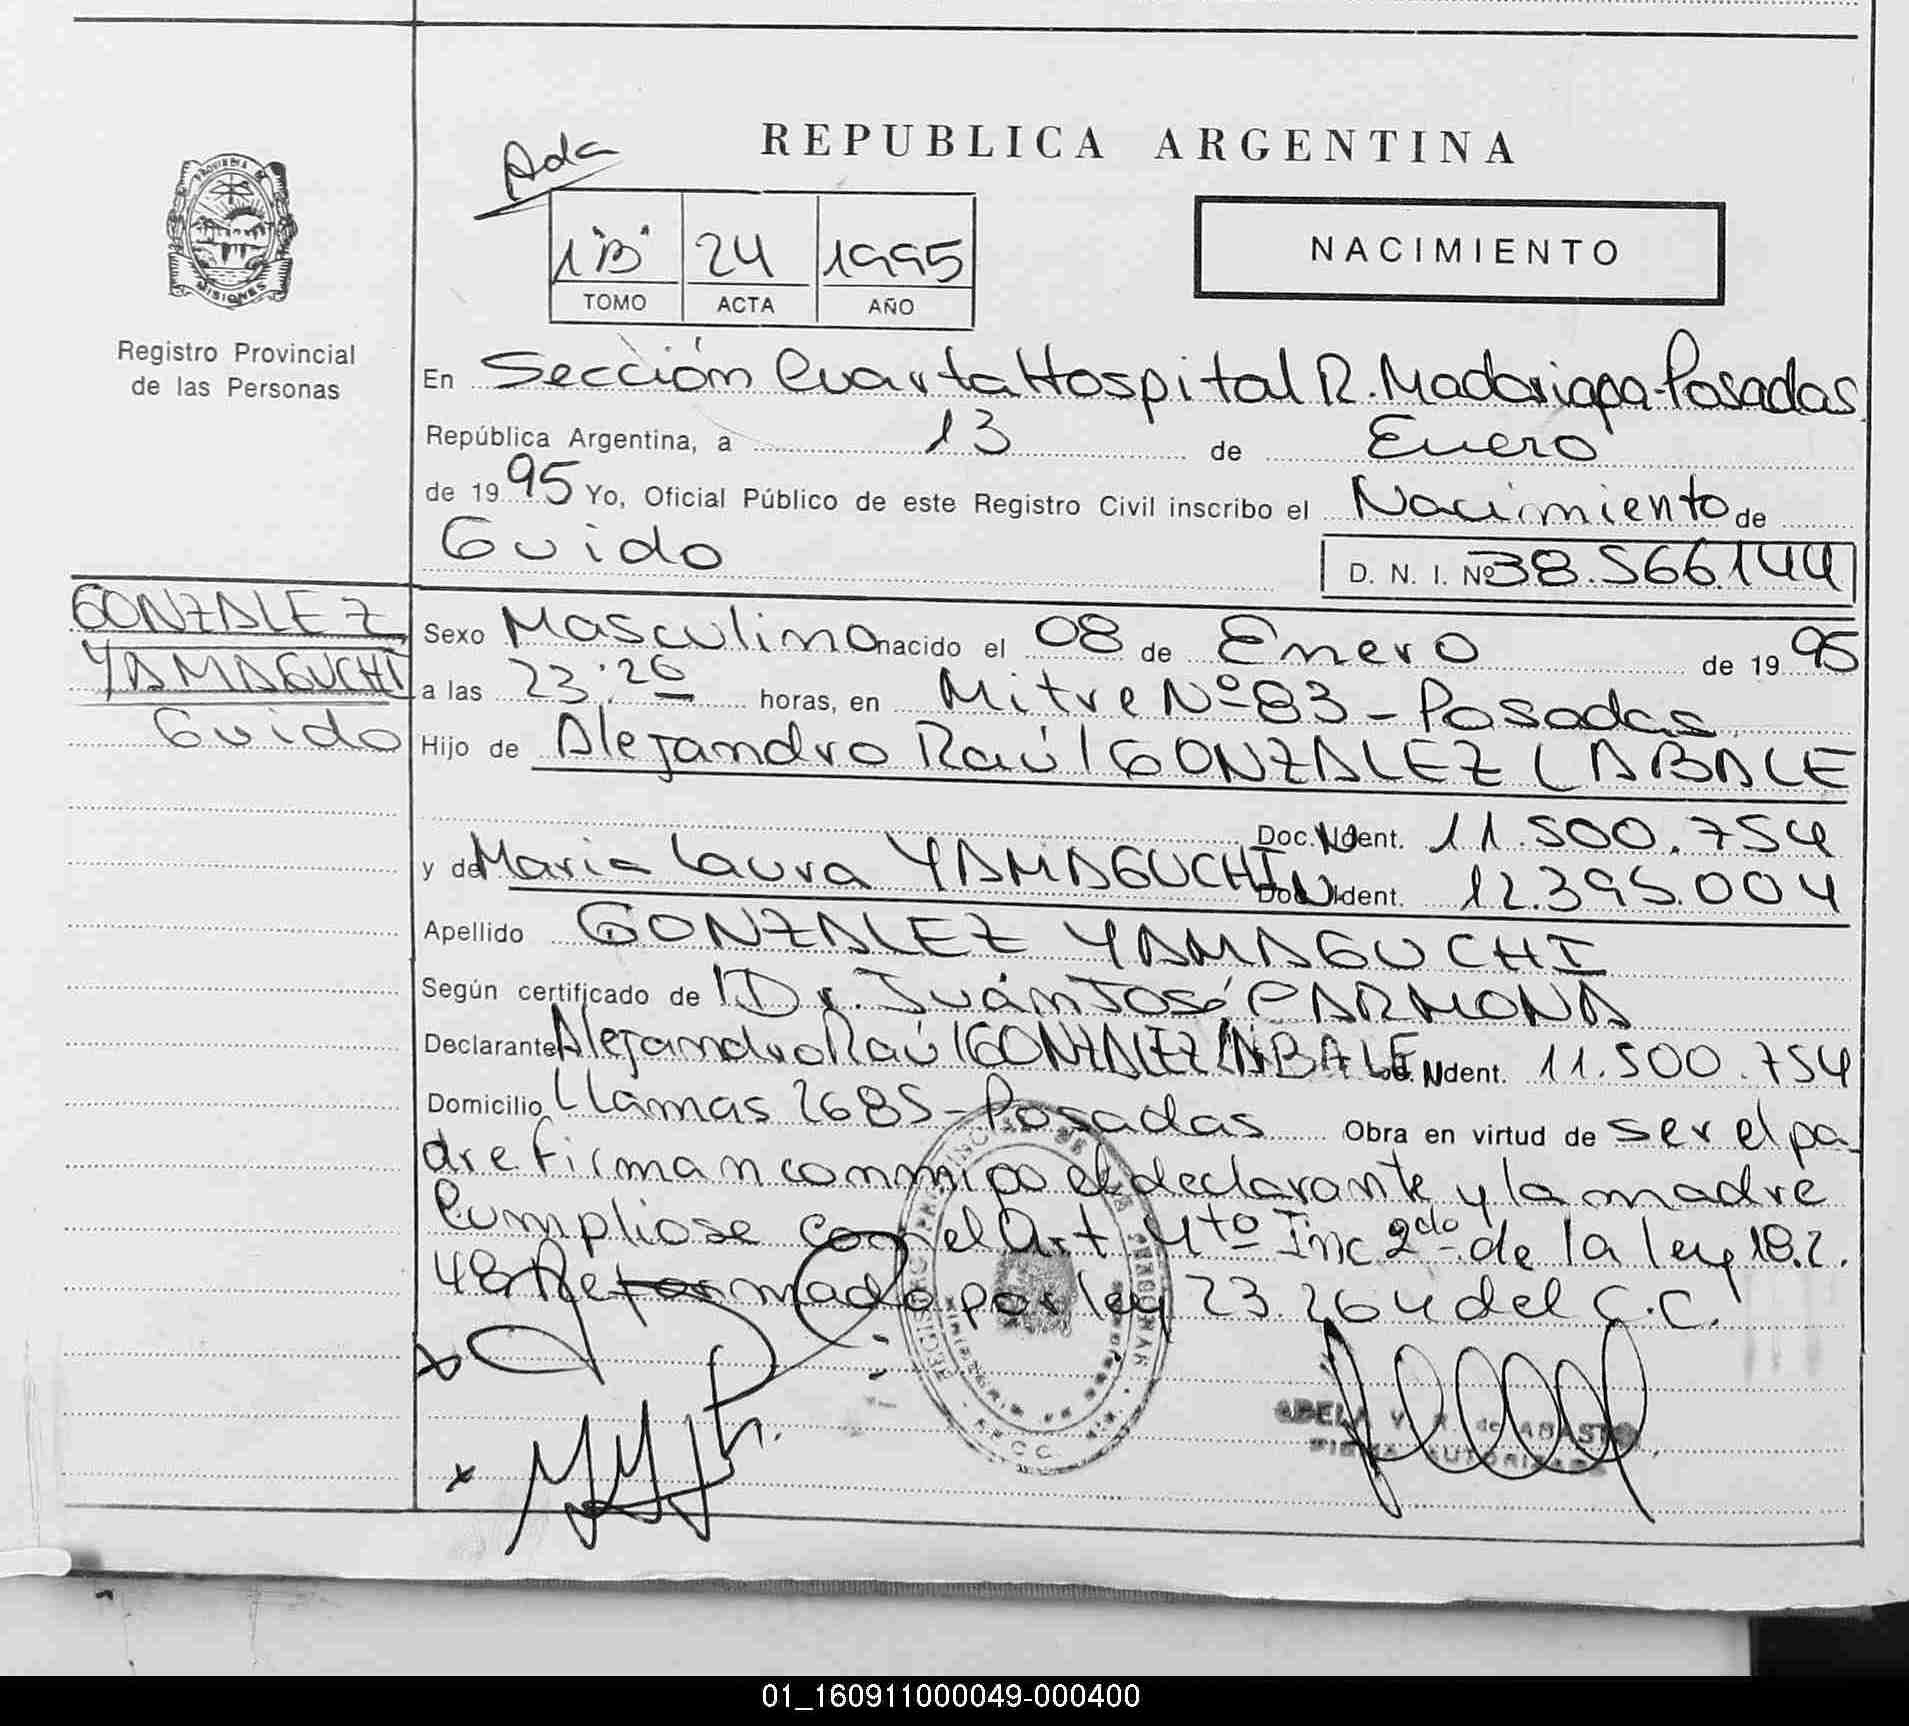 REPUBLICA ARGENTINA
Ada
1"B" 24 1995
TOMO ACTA AÑO
NACIMIENTO
PROVINCIA DE
MISIONES
Registro Provincial
de las Personas
En Sección Cuarta Hospital R. Madariaga-Posadas
República Argentina, a 13 de Enero
de 1995 Yo, Oficial Público de este Registro Civil inscribo el Nacimiento de
Guido
D. N. I. Nº 38.566.144
GONZALEZ
YAMAGUCHI
Guido
Sexo Masculino nacido el 08 de Enero de 1995
a las 23:20 horas, en Mitre Nº 83 - Posadas
Hijo de Alejandro Raúl GONZALEZ LABALE
Doc. Ident. 11.500.754
y de Maria Laura YAMAGUCHI Doc. Ident. 12.395.004
Apellido GONZALEZ YAMAGUCHI
Según certificado de Dr. Juán José CARMONA
Declarante Alejandro Raúl GONZALEZ LABALE Ndent. 11.500.754
Domicilio Llamas 2685 - Posadas Obra en virtud de ser el pa
dre firman conmigo el declarante y la madre
Cumpliose con el Art 4to Inc 2do de la ley 18.2.
48 Reformado por ley 23.264 del C.C.
ADELA V. R. de ABASTO
FIRMA AUTORIZADA
01_160911000049-000400